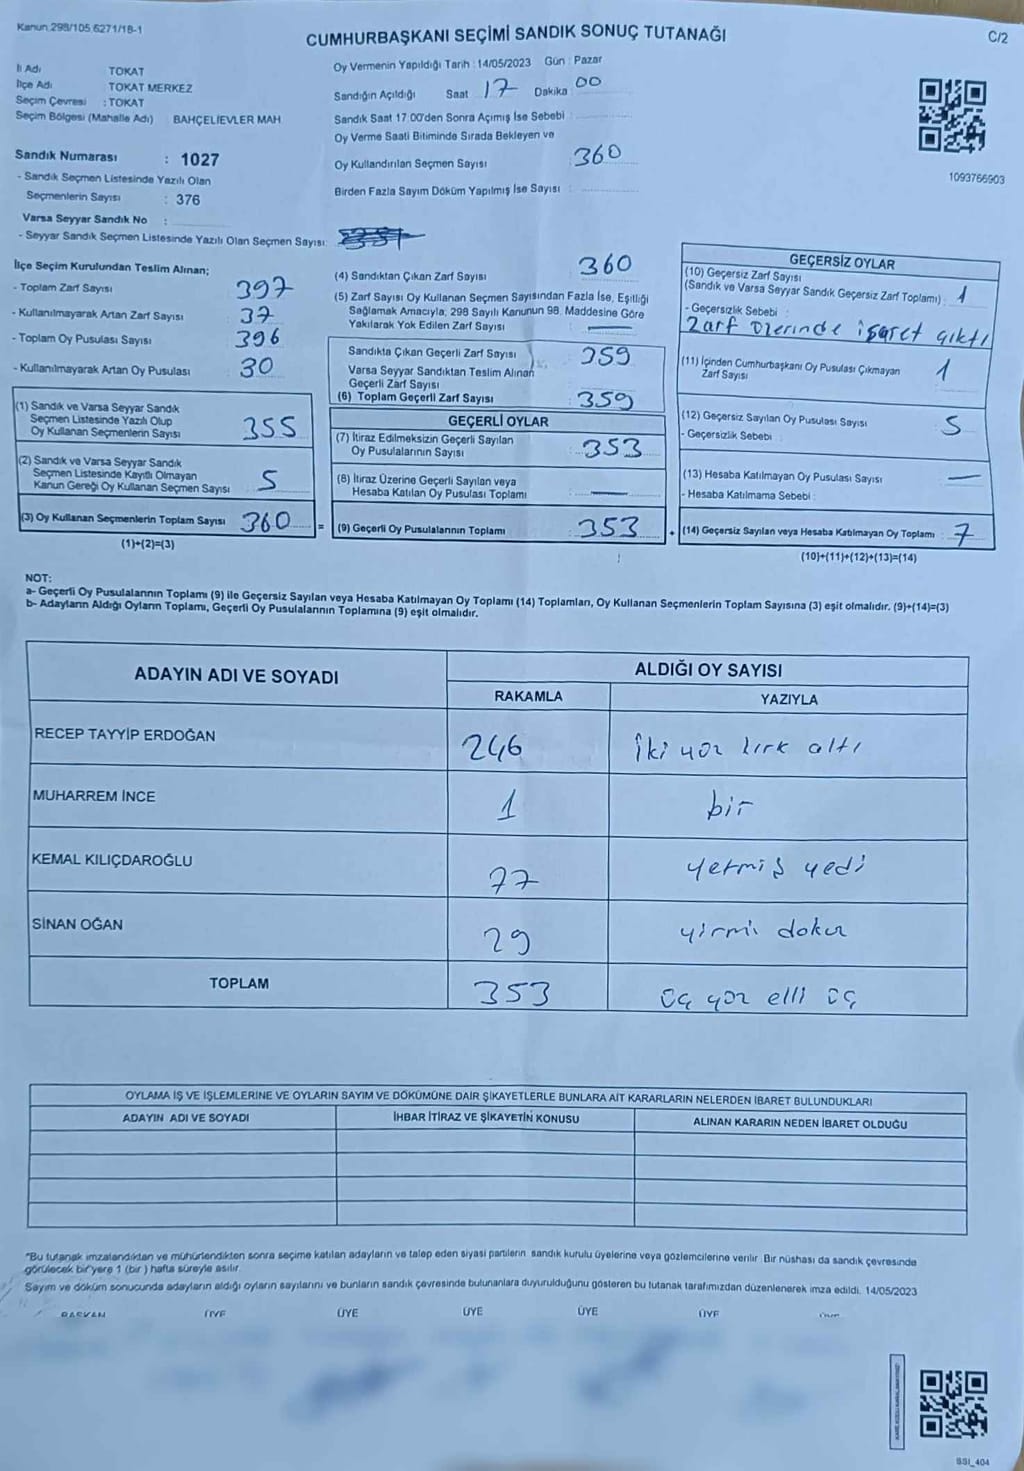 Kanun 298/105 6271/18-1
CUMHURBAŞKANI SEÇİMİ SANDIK SONUÇ TUTANAĞI
C/2
İl Adı TOKAT
İlçe Adı TOKAT MERKEZ
Seçim Çevresi : TOKAT
Seçim Bölgesi (Mahalle Adı) BAHÇELİEVLER MAH
Sandık Numarası : 1027
- Sandık Seçmen Listesinde Yazılı Olan
Seçmenlerin Sayısı : 376
Varsa Seyyar Sandık No :
- Seyyar Sandık Seçmen Listesinde Yazılı Olan Seçmen Sayısı:
Oy Vermenin Yapıldığı Tarih : 14/05/2023 Gün : Pazar
Sandığın Açıldığı Saat 17 Dakika 00
Sandık Saat 17:00'den Sonra Açımış İse Sebebi
Oy Verme Saati Bitiminde Sırada Bekleyen ve
Oy Kullandırılan Seçmen Sayısı : 360
Birden Fazla Sayım Döküm Yapılmış İse Sayısı :
1093766903
İlçe Seçim Kurulundan Teslim Alınan;
- Toplam Zarf Sayısı 397
- Kullanılmayarak Artan Zarf Sayısı 37
- Toplam Oy Pusulası Sayısı 396
- Kullanılmayarak Artan Oy Pusulası 30
(1) Sandık ve Varsa Seyyar Sandık
Seçmen Listesinde Yazılı Olup
Oy Kullanan Seçmenlerin Sayısı 355
(2) Sandık ve Varsa Seyyar Sandık
Seçmen Listesinde Kayıtlı Olmayan
Kanun Gereği Oy Kullanan Seçmen Sayısı 5
(3) Oy Kullanan Seçmenlerin Toplam Sayısı 360 =
(1)+(2)=(3)
(4) Sandıktan Çıkan Zarf Sayısı 360
(5) Zarf Sayısı Oy Kullanan Seçmen Sayısından Fazla İse, Eşitliği
Sağlamak Amacıyla, 298 Sayılı Kanunun 98. Maddesine Göre
Yakılarak Yok Edilen Zarf Sayısı : —
Sandıkta Çıkan Geçerli Zarf Sayısı 359
Varsa Seyyar Sandıktan Teslim Alınan
Geçerli Zarf Sayısı
(6) Toplam Geçerli Zarf Sayısı 359
GEÇERLİ OYLAR
(7) İtiraz Edilmeksizin Geçerli Sayılan
Oy Pusulalarının Sayısı : 353
(8) İtiraz Üzerine Geçerli Sayılan veya
Hesaba Katılan Oy Pusulası Toplamı : —
(9) Geçerli Oy Pusulalarının Toplamı : 353 +
GEÇERSİZ OYLAR
(10) Geçersiz Zarf Sayısı
(Sandık ve Varsa Seyyar Sandık Geçersiz Zarf Toplamı) : 1
- Geçersizlik Sebebi :
Zarf üzerinde işaret çıktı
(11) İçinden Cumhurbaşkanı Oy Pusulası Çıkmayan
Zarf Sayısı 1
(12) Geçersiz Sayılan Oy Pusulası Sayısı 5
- Geçersizlik Sebebi :
(13) Hesaba Katılmayan Oy Pusulası Sayısı —
- Hesaba Katılmama Sebebi :
(14) Geçersiz Sayılan veya Hesaba Katılmayan Oy Toplamı : 7
(10)+(11)+(12)+(13)=(14)
NOT:
a- Geçerli Oy Pusulalarının Toplamı (9) ile Geçersiz Sayılan veya Hesaba Katılmayan Oy Toplamı (14) Toplamları, Oy Kullanan Seçmenlerin Toplam Sayısına (3) eşit olmalıdır. (9)+(14)=(3)
b- Adayların Aldığı Oyların Toplamı, Geçerli Oy Pusulalarının Toplamına (9) eşit olmalıdır.
ADAYIN ADI VE SOYADI ALDIĞI OY SAYISI
RAKAMLA YAZIYLA
RECEP TAYYİP ERDOĞAN 246 İki yüz kırk altı
MUHARREM İNCE 1 bir
KEMAL KILIÇDAROĞLU 77 yetmiş yedi
SİNAN OĞAN 29 yirmi dokuz
TOPLAM 353 üç yüz elli üç
OYLAMA İŞ VE İŞLEMLERİNE VE OYLARIN SAYIM VE DÖKÜMÜNE DAİR ŞİKAYETLERLE BUNLARA AİT KARARLARIN NELERDEN İBARET BULUNDUKLARI
ADAYIN ADI VE SOYADI İHBAR İTİRAZ VE ŞİKAYETİN KONUSU ALINAN KARARIN NEDEN İBARET OLDUĞU
"Bu tutanak imzalandıktan ve mühürlendikten sonra seçime katılan adayların ve talep eden siyasi partilerin sandık kurulu üyelerine veya gözlemcilerine verilir. Bir nüshası da sandık çevresinde
görülecek bir yere 1 (bir) hafta süreyle asılır.
Sayım ve döküm sonucunda adayların aldığı oyların sayılarını ve bunların sandık çevresinde bulunanlara duyurulduğunu gösteren bu tutanak tarafımızdan düzenlenerek imza edildi. 14/05/2023
BAŞKAN ÜYE ÜYE ÜYE ÜYE ÜYE ÜYE
SSI_404